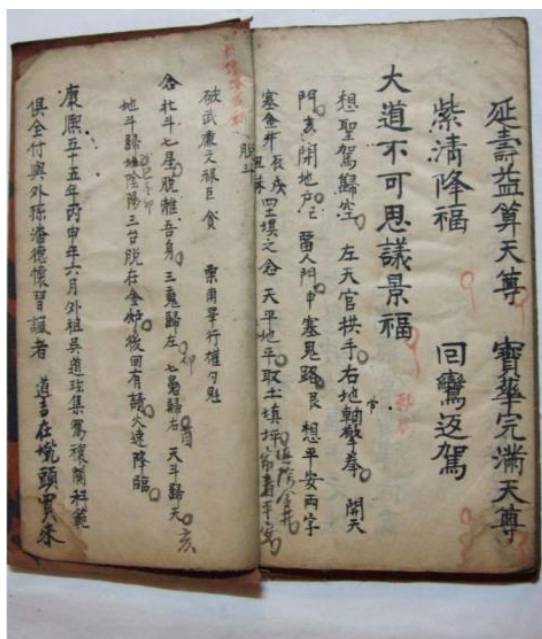 延壽益算天尊 寶華完滿天尊
紫清降福 回鸞返駕
大道不可思議景福
想聖駕歸空 左天官拱手 右地軸擎拳 開天
門亥 開地户己 留人門申 塞鬼路艮 想平安兩字
塞金井 辰戌丑未 四土填之 念 天平地平 取土填坪
脱斗
破武廉文祿巨貪
念 北斗七星 脱離吾身 三魂歸左卯 七魄歸右酉 天斗歸天亥
地斗歸地 陰陽三台 脱在金 後回有請 火速降臨
康熙五十五年丙申年六月外祖吳道玹集寫禳關科範
俱全付與外孫潘德懷習誦者 道言在壠頭買來